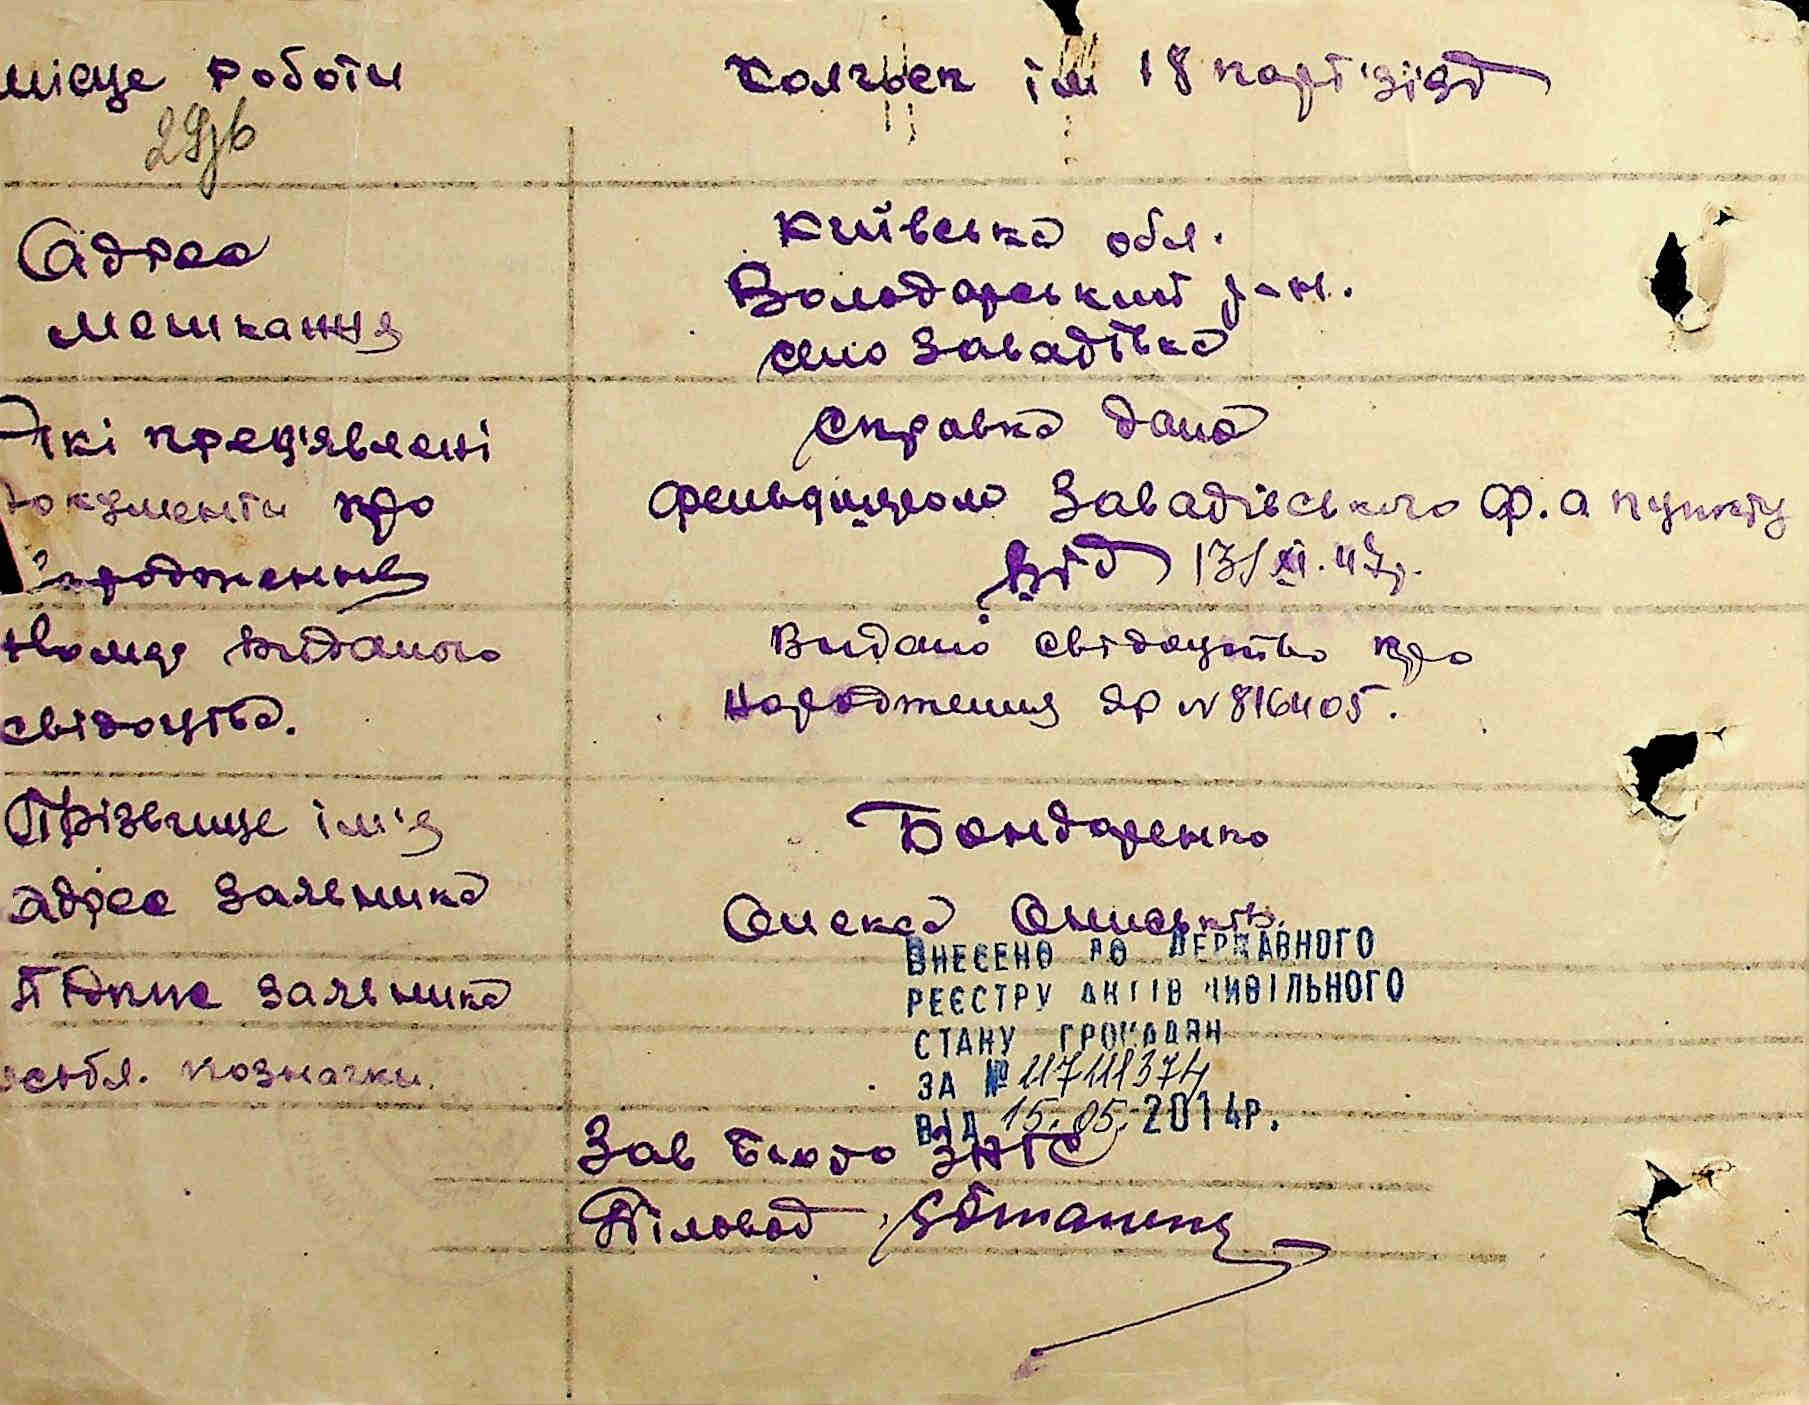 місце роботи Колгосп ім 18 парт'зізд
Адреса Київська обл.
Володарський р-н.
мешкання село Завадівка
Які пред'явлені Справка дана
документи про фельдшером Завадівського Ф.а пункту
народження від 13/XI.47р.
Номер виданого Видано свідоцтво про
свідоцтва. народження ЯР N 816405.
Прізвище ім'я Бондаренко
адреса заявника Олекса Ониськів.
ВНЕСЕНО ДО ДЕРЖАВНОГО
Підпис заявника РЕЄСТРУ АКТІВ ЦИВІЛЬНОГО
СТАНУ ГРОМАДЯН
особл. позначки. ЗА № 117111374
ВІД 15.05.2014Р.
Зав Бюро ЗАГС
Діловод